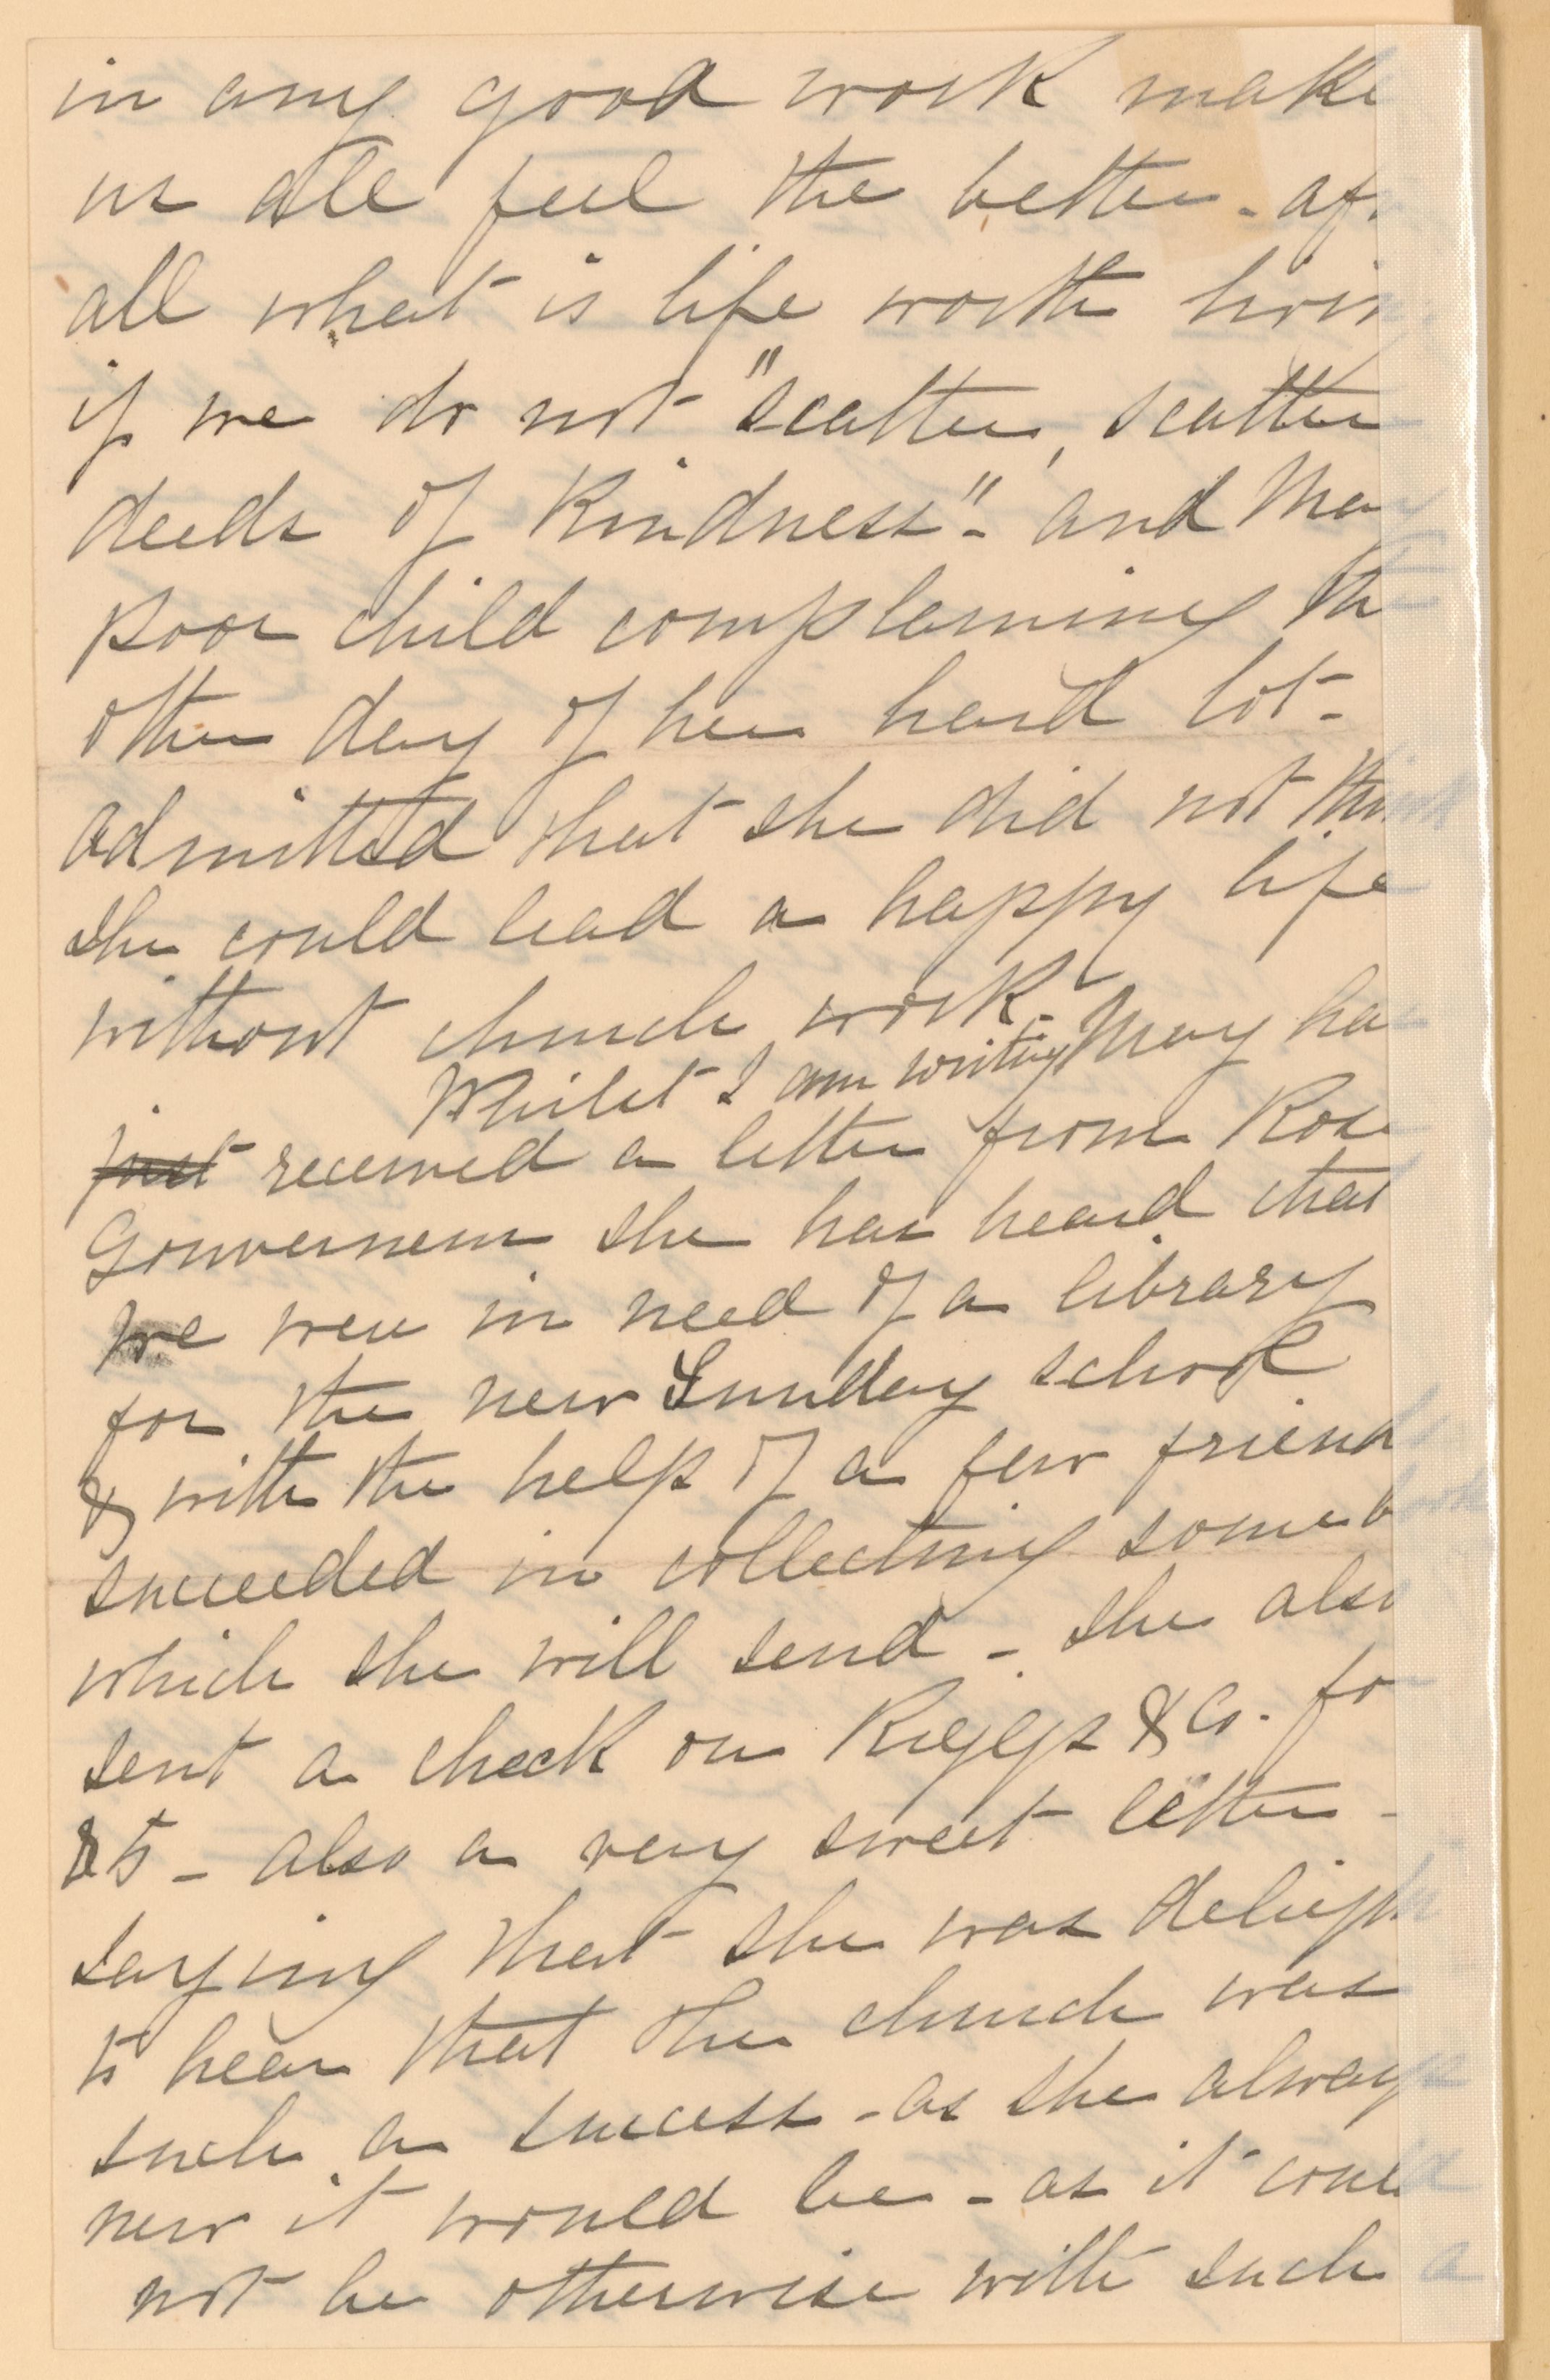 in any good work make
us all feel the better - af
all what is life worth livin
if we do not "scatter, scatter
deeds of Kindness" - and May
poor child complaining th
other day of her hard lot -
admitted that she did not think
she could lead a happy life
without church work -
Whilst I am writing May has
just received a letter from Rose
Gouverneur she has heard that
we were in need of a library
for the new Sunday school
& with the help of a few friends
succeeded in collecting some books
which she will send - she also
sent a check on Riggs & Co. for
$5 - also a very sweet letter -
saying that she was deligh
to hear that the church was
such a success - as she always
new it would be - as it could
not be otherwise with such a